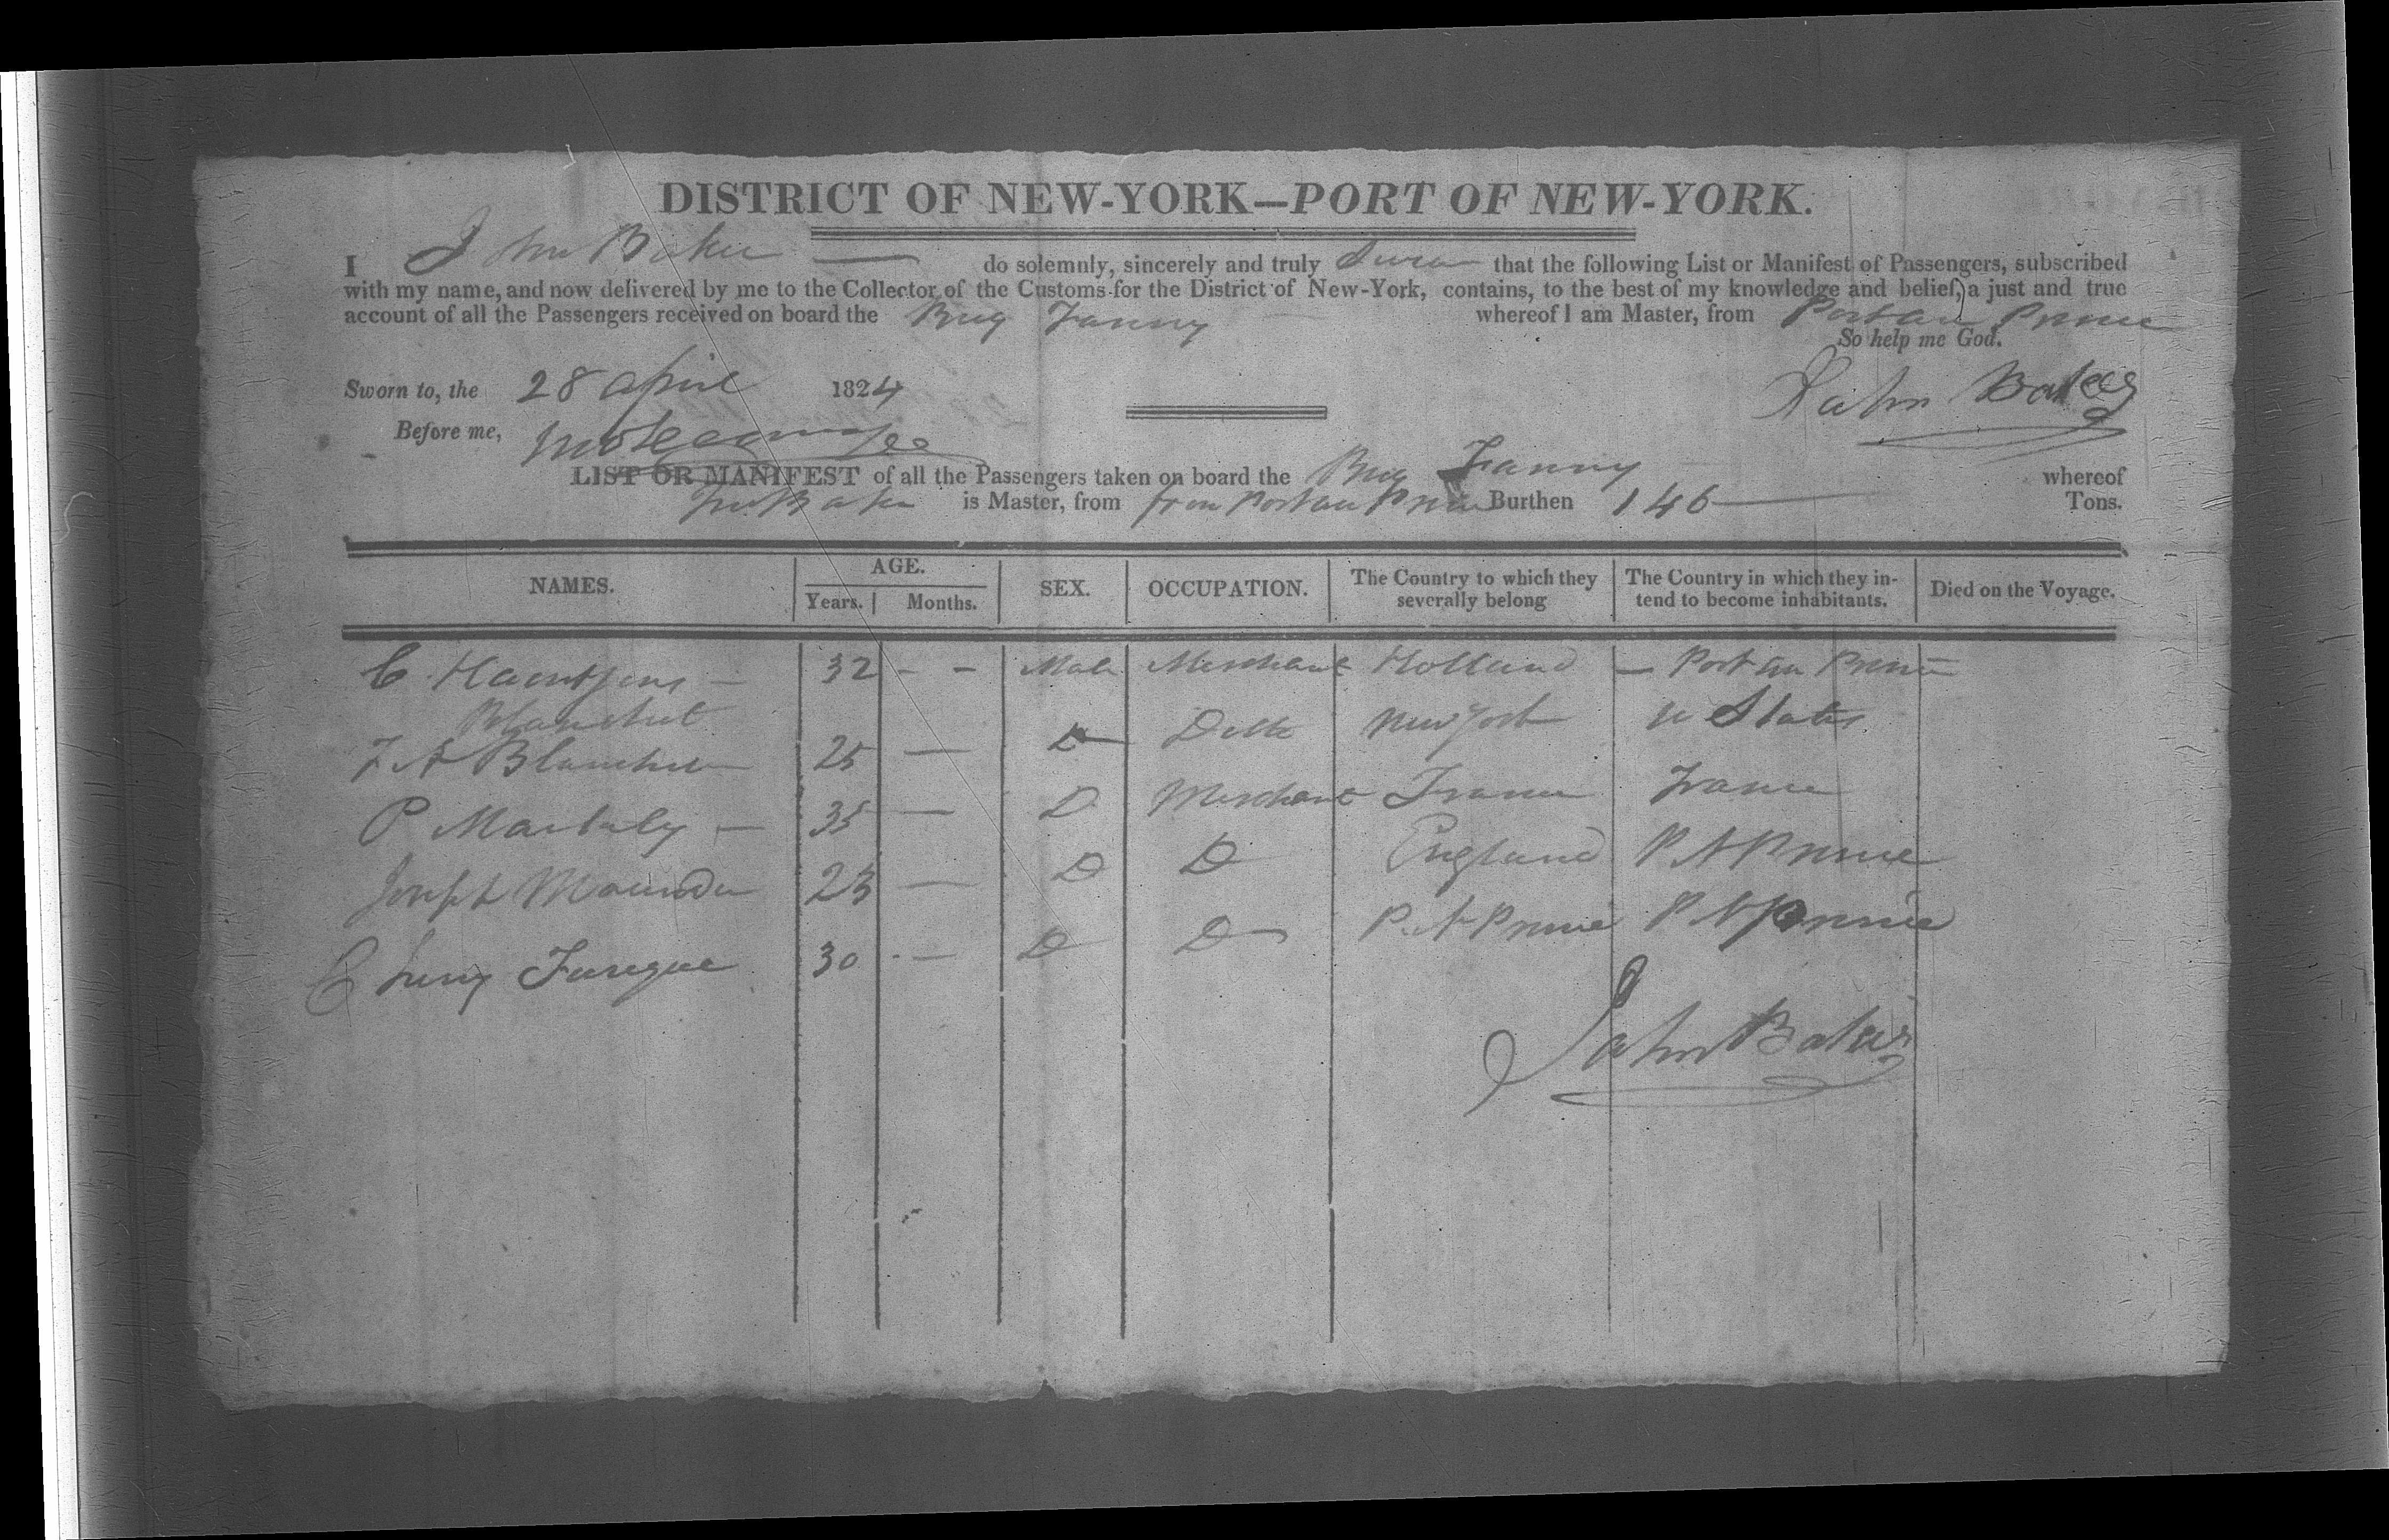 DISTRICT OF NEW-YORK—PORT OF NEW-YORK.
I John Baker do solemnly, sincerely and truly swear that the following List or Manifest of Passengers, subscribed
with my name, and now delivered by me to the Collector of the Customs for the District of New-York, contains, to the best of my knowledge and belief, a just and true
account of all the Passengers received on board the Brig Fanny whereof I am Master, from Port au Prince
So help me God.
Sworn to, the 28 april 1824 John Baker
Before me,
LIST OR MANIFEST of all the Passengers taken on board the Brig Fanny whereof
Jno Baker is Master, from from Port au Prince Burthen 146 Tons.
NAMES. AGE. Years. Months. SEX. OCCUPATION. The Country to which they severally belong The Country in which they intend to become inhabitants. Died on the Voyage.
C. Haentjens — 32 - - Male Merchant Holland — Port au Prince
Blanchet
F A Blanchet 25 — D Ditto New York U States
P — 35 — D Merchant France France
Joseph 23 — D D England P A Prince
30 - — D D P. A Prince P A Prince
John Baker